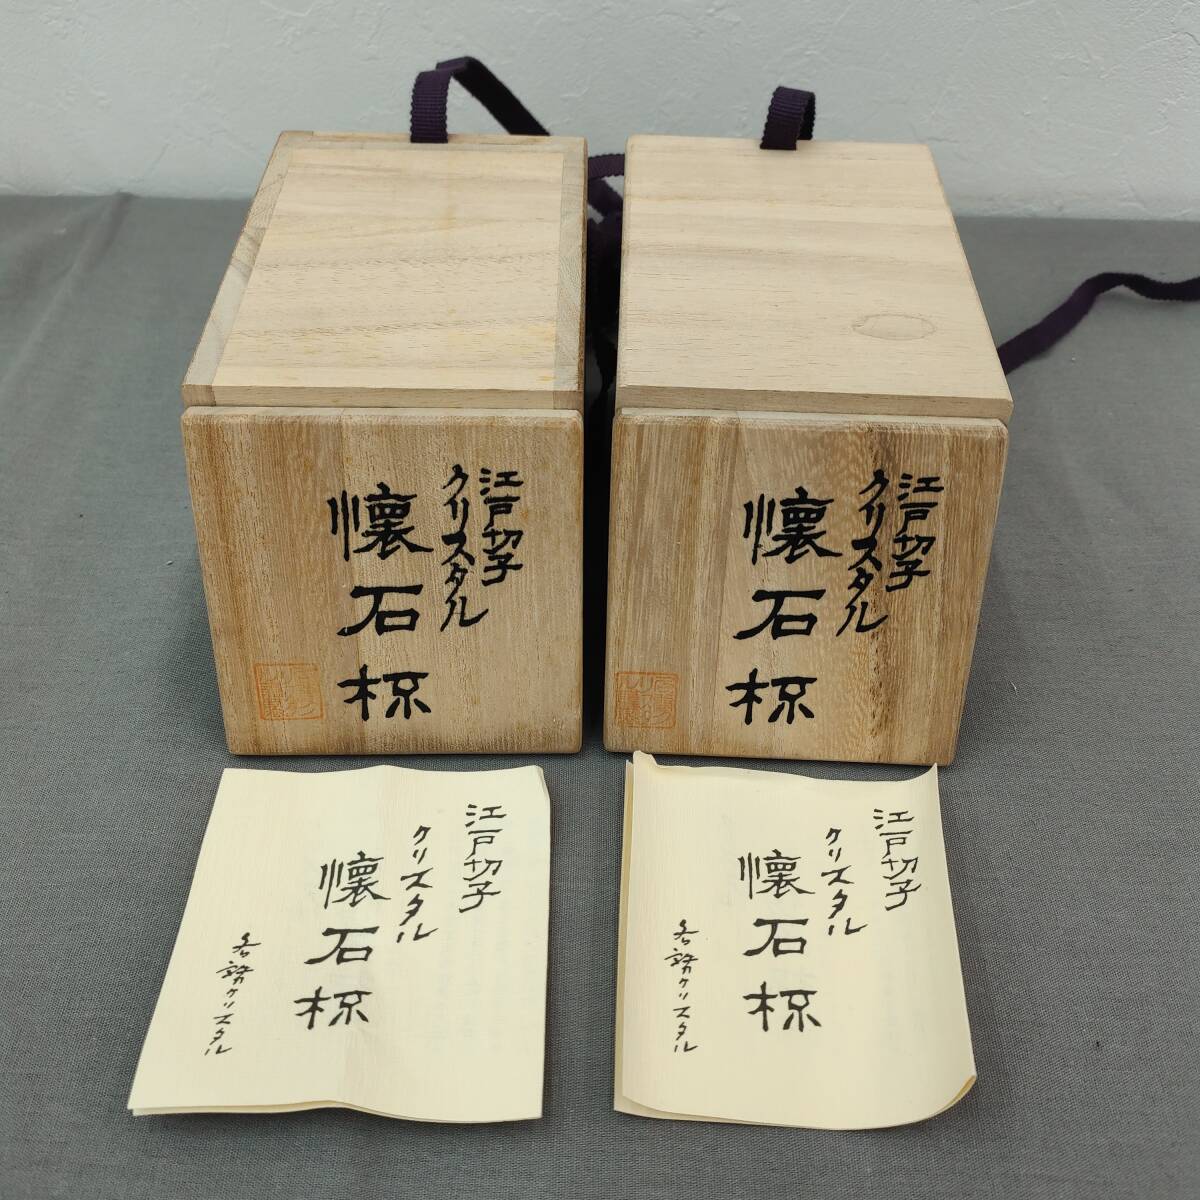 江戸切子
クリスタル
懐石杯
江戸切子
クリスタル
懐石杯
江戸切子
クリスタル
懐石杯
各務クリスタル
江戸切子
クリスタル
懐石杯
各務クリスタル